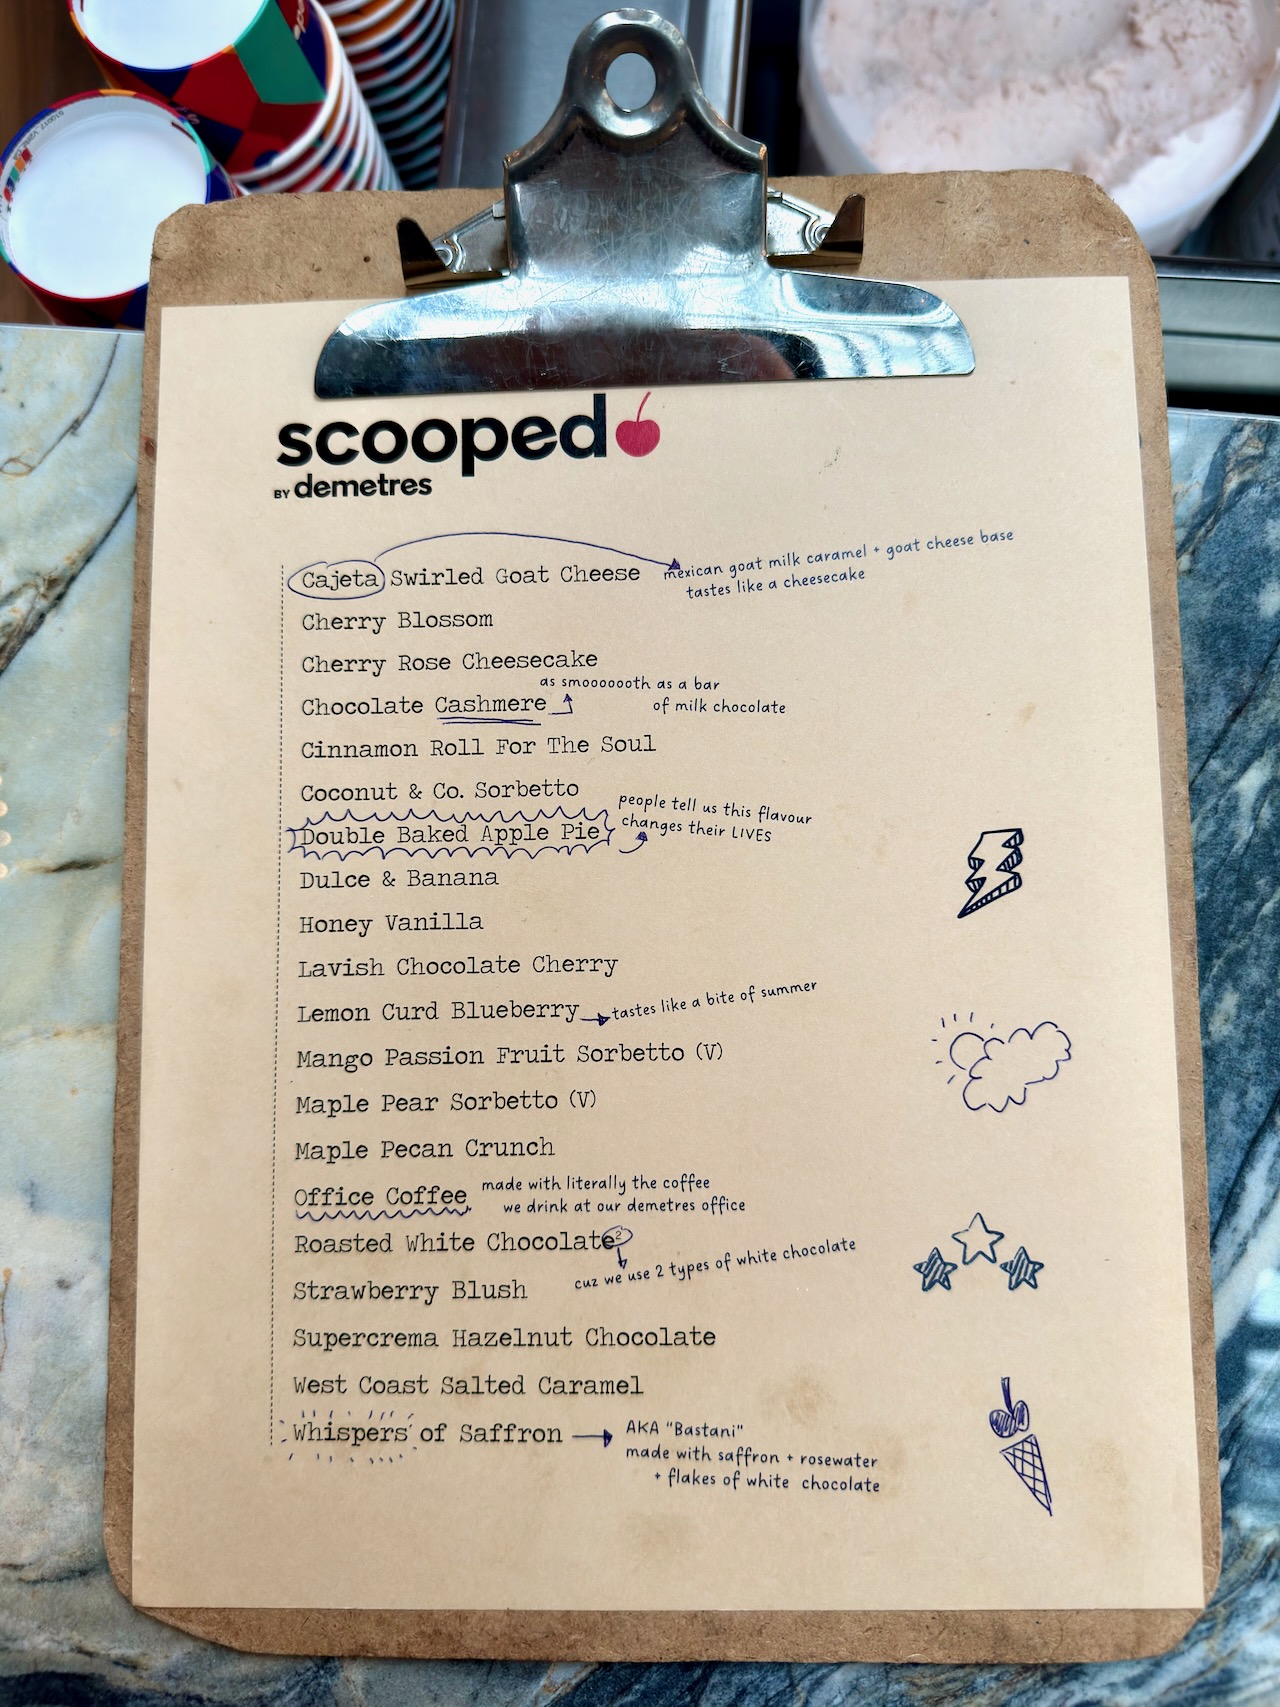 scooped
BY demetres
Cajeta Swirled Goat Cheese
mexican goat milk caramel + goat cheese base
tastes like a cheesecake
Cherry Blossom
Cherry Rose Cheesecake
as smooooooth as a bar
of milk chocolate
Chocolate Cashmere
Cinnamon Roll For The Soul
Coconut & Co. Sorbetto
people tell us this flavour
changes their LIVES
Double Baked Apple Pie
Dulce & Banana
Honey Vanilla
Lavish Chocolate Cherry
Lemon Curd Blueberry
tastes like a bite of summer
Mango Passion Fruit Sorbetto (V)
Maple Pear Sorbetto (V)
Maple Pecan Crunch
Office Coffee
made with literally the coffee
we drink at our demetres office
Roasted White Chocolate²
cuz we use 2 types of white chocolate
Strawberry Blush
Supercrema Hazelnut Chocolate
West Coast Salted Caramel
Whispers of Saffron
AKA "Bastani"
made with saffron + rosewater
+ flakes of white chocolate